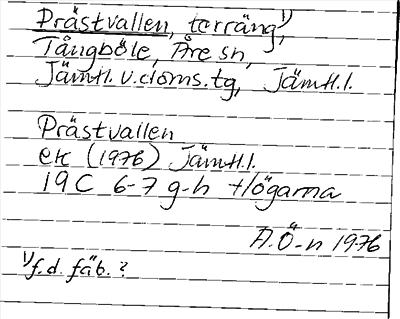 Prästvallen, terräng¹⁾,
Tångböle, Åre sn,
Jämtl. v. doms. tg, Jämtl. l.
Prästvallen
ek (1976) Jämtl. l.
19C 6-7 g-h Högarna
A.Ö-n 1976
¹⁾f.d. fäb. ?